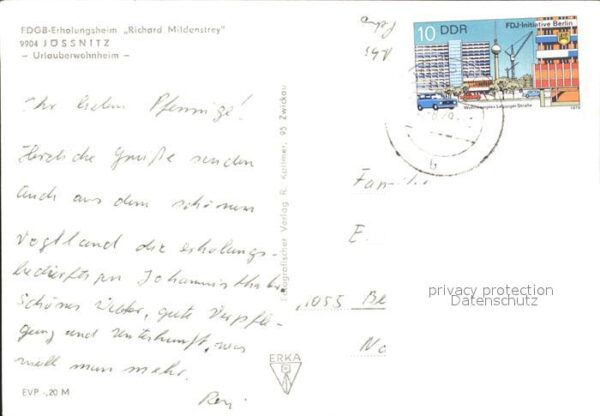 FDGB-Erholungsheim „Richard Mildenstrey"
9904 JÖSSNITZ
– Urlauberwohnheim –
Ihr lieben Pfennige!
Herzliche Grüße senden
auch aus dem schönen
Vogtland die erholungs-
bedürftigen
schönes Wetter, gute Verpfle-
gung und Unterkunft, was
will man mehr.
EVP -,20 M
Fotografischer Verlag R. Kallmer, 95 Zwickau
ERKA
10 DDR
FDJ-Initiative Berlin
Wohnkomplex Leipziger Straße
1979
b
Familie
E.
1055 Be
No
privacy protection
Datenschutz